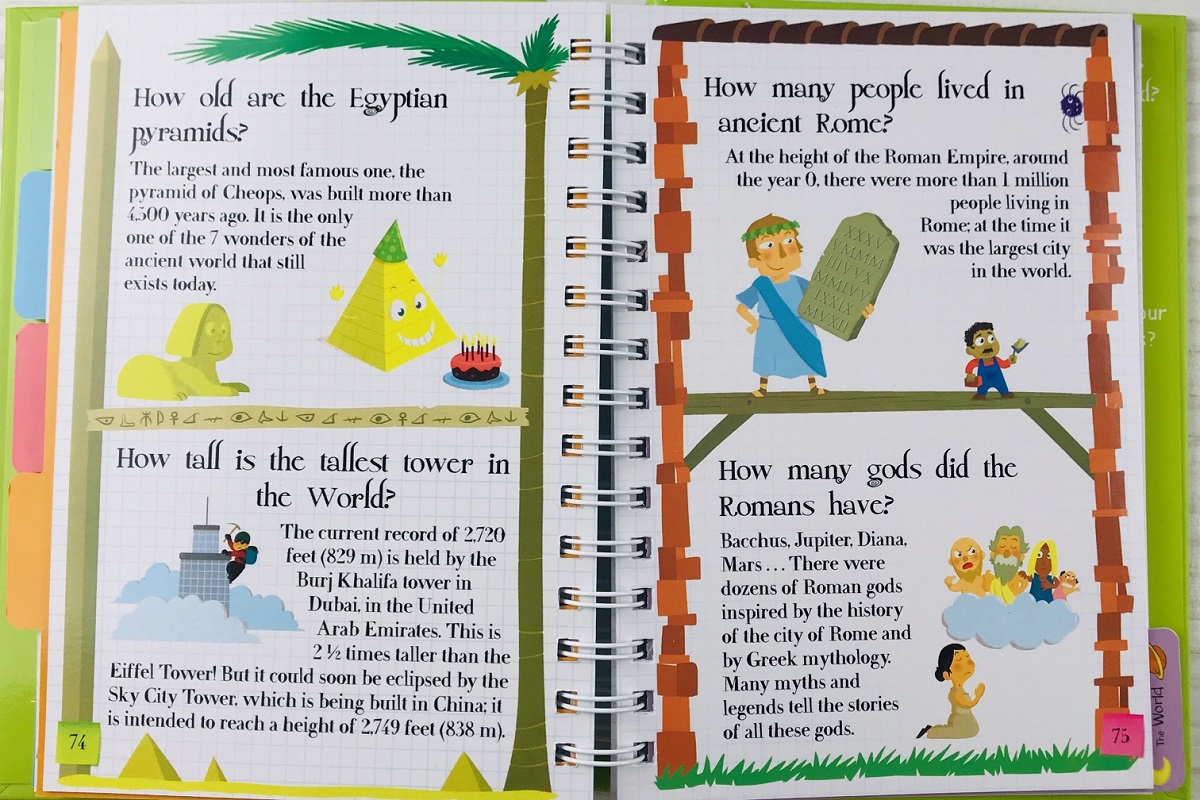 How old are the Egyptian
pyramids?
The largest and most famous one, the
pyramid of Cheops, was built more than
4,500 years ago. It is the only
one of the 7 wonders of the
ancient world that still
exists today.
How tall is the tallest tower in
the World?
The current record of 2,720
feet (829 m) is held by the
Burj Khalifa tower in
Dubai, in the United
Arab Emirates. This is
2 ½ times taller than the
Eiffel Tower! But it could soon be eclipsed by the
Sky City Tower, which is being built in China; it
is intended to reach a height of 2,749 feet (838 m).
74
How many people lived in
ancient Rome?
At the height of the Roman Empire, around
the year 0, there were more than 1 million
people living in
Rome; at the time it
was the largest city
in the world.
XXXV
VMMM
IIIVVX
MMIVV
IXXIX
MVXII
How many gods did the
Romans have?
Bacchus, Jupiter, Diana,
Mars ... There were
dozens of Roman gods
inspired by the history
of the city of Rome and
by Greek mythology.
Many myths and
legends tell the stories
of all these gods.
75
The World